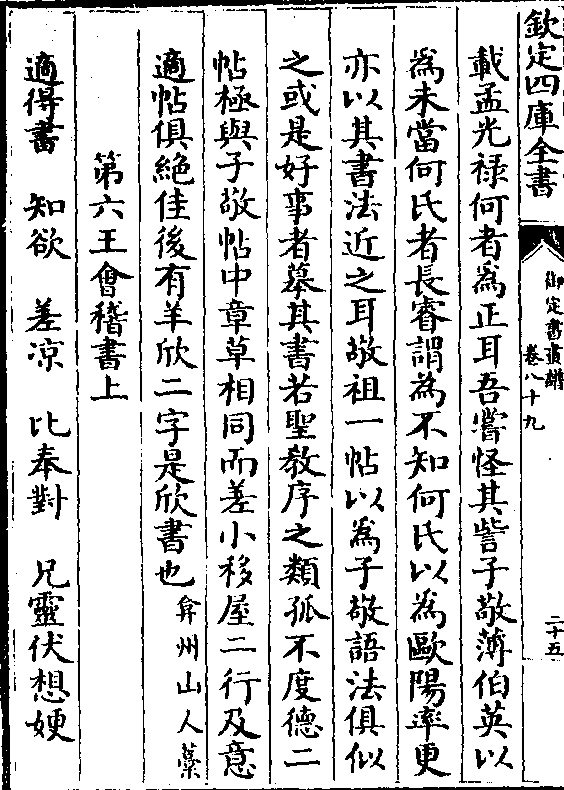 欽定四庫全書
御定書畫譜
卷八十九
二十五
載孟光祿何者為正耳吾嘗怪其訾子敬薄伯英以
為未當何氏者長睿謂為不知何氏以為歐陽率更
亦以其書法近之耳敬祖一帖以為子敬語法俱似
之或是好事者摹其書若聖教序之類孤不度德二
帖極與子敬帖中章草相同而差小移屋二行及意
適帖俱絶佳後有羊欣二字是欣書也弇州山人藁
第六王會稽書上
適得書 知欲 差涼 比奉對 兄靈伏想㛐